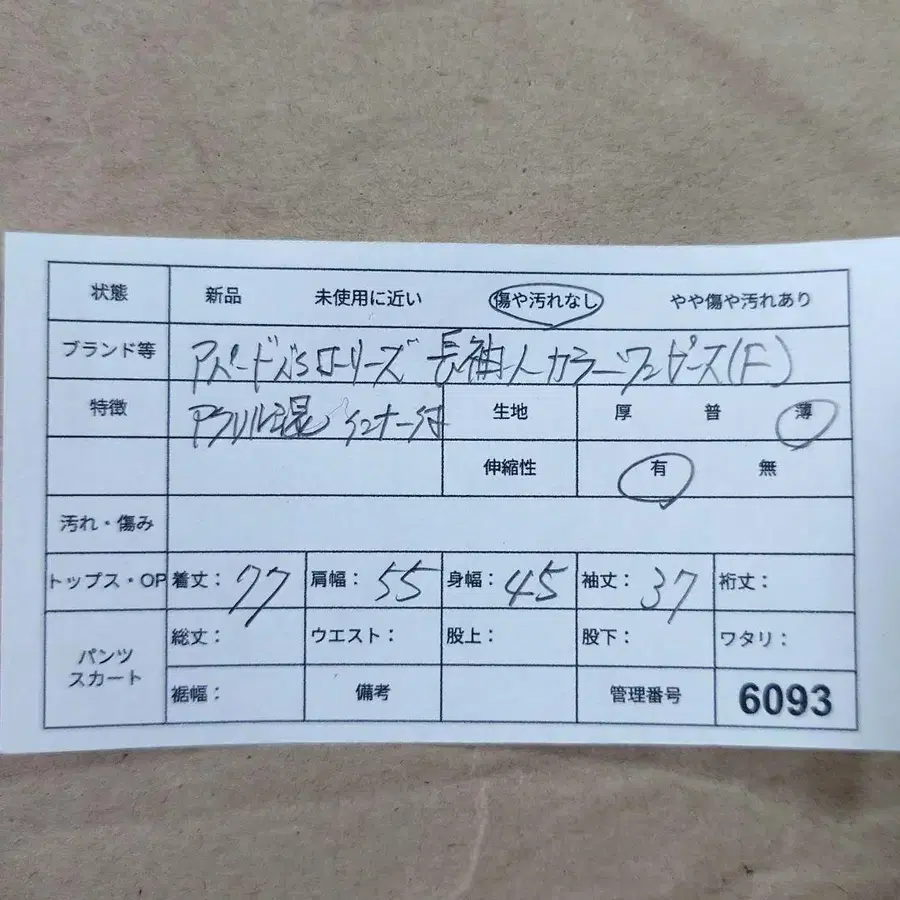 状態 新品 未使用に近い 傷や汚れなし やや傷や汚れあり
ブランド等 アパートバイローリーズ 長袖ノーカラーワンピース(F)
特徴 アクリル混 インナー付 生地 厚 普 薄
伸縮性 有 無
汚れ・傷み
トップス・OP 着丈: 77 肩幅: 55 身幅: 45 袖丈: 37 裄丈:
パンツ
スカート
総丈: ウエスト: 股上: 股下: ワタリ:
裾幅: 備考 管理番号 6093